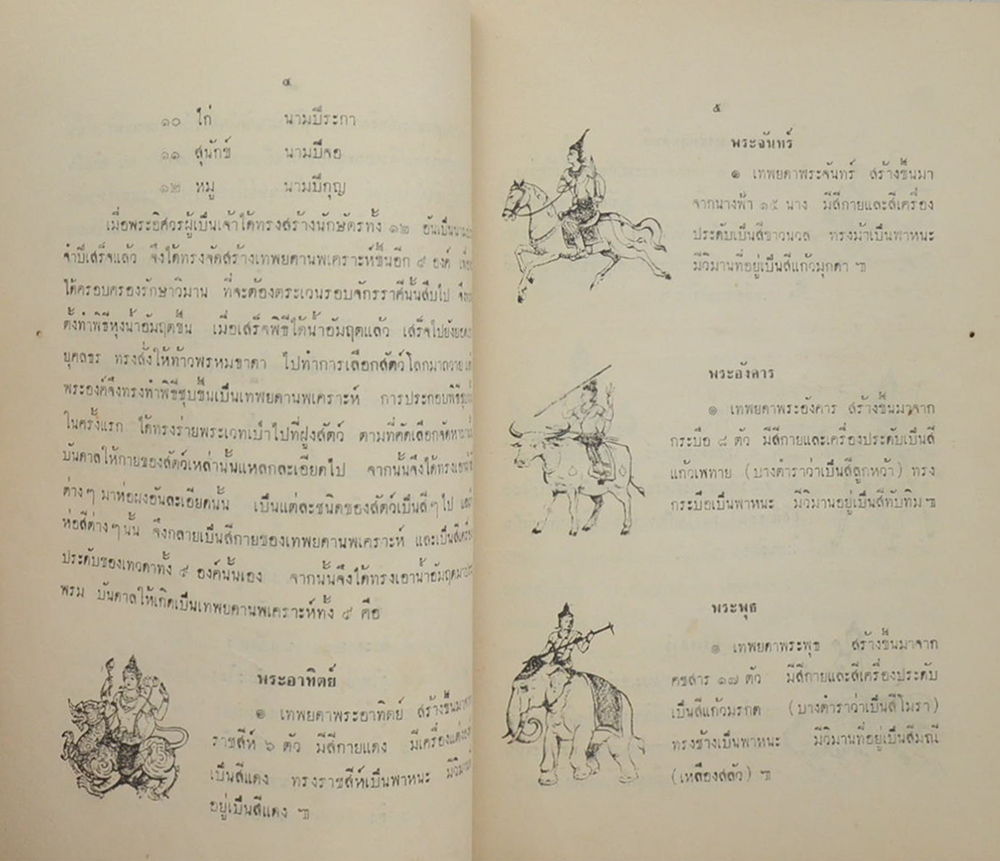 ๔
๑๐ ไก่ นามปีระกา
๑๑ สุนักข์ นามปีจอ
๑๒ หมู นามปีกุญ
เมื่อพระอิศวรผู้เป็นเจ้าได้ทรงสร้างนักษัตรทั้ง ๑๒ อันเป็น
จำปีเสร็จแล้ว จึงได้ทรงจัดสร้างเทพยดานพเคราะห์ขึ้นอีก ๙ องค์
ได้ครอบครองรักษาวิมาน ที่จะต้องตระเวนรอบจักรราศีนั้นสืบไป
ตั้งทำพิธีหุงน้ำอัมฤตขึ้น เมื่อเสร็จพิธีได้น้ำอัมฤตแล้ว เสร็จไปยังยอด
ยุคลธร ทรงสั่งให้ท้าวพรหมธาดา ไปทำการเลือกสัตว์โลกมาถวาย
พระองค์จึงทรงทำพิธีชุบขึ้นเป็นเทพยดานพเคราะห์ การประกอบพิธี
ในครั้งแรก ได้ทรงร่ายพระเวทเป่าไปที่ฝูงสัตว์ ตามที่คัดเลือกจัดหา
บันดาลให้กายของสัตว์เหล่านั้นแหลกละเอียดไป จากนั้นจึงได้ทรง
ต่างๆ มาห่อผงอันละเอียดนั้น เป็นแต่ละชนิดของสัตว์เป็นสีๆ ไป
ห่อสีต่างๆ นั้น จึงกลายเป็นสีกายของเทพยดานพเคราะห์ และเป็น
ประดับของเทวดาทั้ง ๙ องค์นั้นเอง จากนั้นจึงได้ทรงเอาน้ำอัมฤต
พรม บันดาลให้เกิดเป็นเทพยดานพเคราะห์ทั้ง ๙ คือ
พระอาทิตย์
๑ เทพยดาพระอาทิตย์ สร้างขึ้นมา
ราชสีห์ ๖ ตัว มีสีกายแดง มีเครื่อง
เป็นสีแดง ทรงราชสีห์เป็นพาหนะ
อยู่เป็นสีแดง ฯ
๕
พระจันทร์
๑ เทพยดาพระจันทร์ สร้างขึ้นมา
จากนางฟ้า ๑๕ นาง มีสีกายและสีเครื่อง
ประดับเป็นสีขาวนวล ทรงม้าเป็นพาหนะ
มีวิมานที่อยู่เป็นสีแก้วมุกดา ฯ
พระอังคาร
๑ เทพยดาพระอังคาร สร้างขึ้นมาจาก
กระบือ ๘ ตัว มีสีกายและเครื่องประดับเป็นสี
แก้วเพทาย (บางตำราว่าเป็นสีลูกหว้า) ทรง
กระบือเป็นพาหนะ มีวิมานอยู่เป็นสีทับทิม ฯ
พระพุธ
๑ เทพยดาพระพุธ สร้างขึ้นมาจาก
คชสาร ๑๗ ตัว มีสีกายและสีเครื่องประดับ
เป็นสีแก้วมรกต (บางตำราว่าเป็นสีไมรา)
ทรงช้างเป็นพาหนะ มีวิมานที่อยู่เป็นสีมณี
(เหลืองสลัว) ฯ